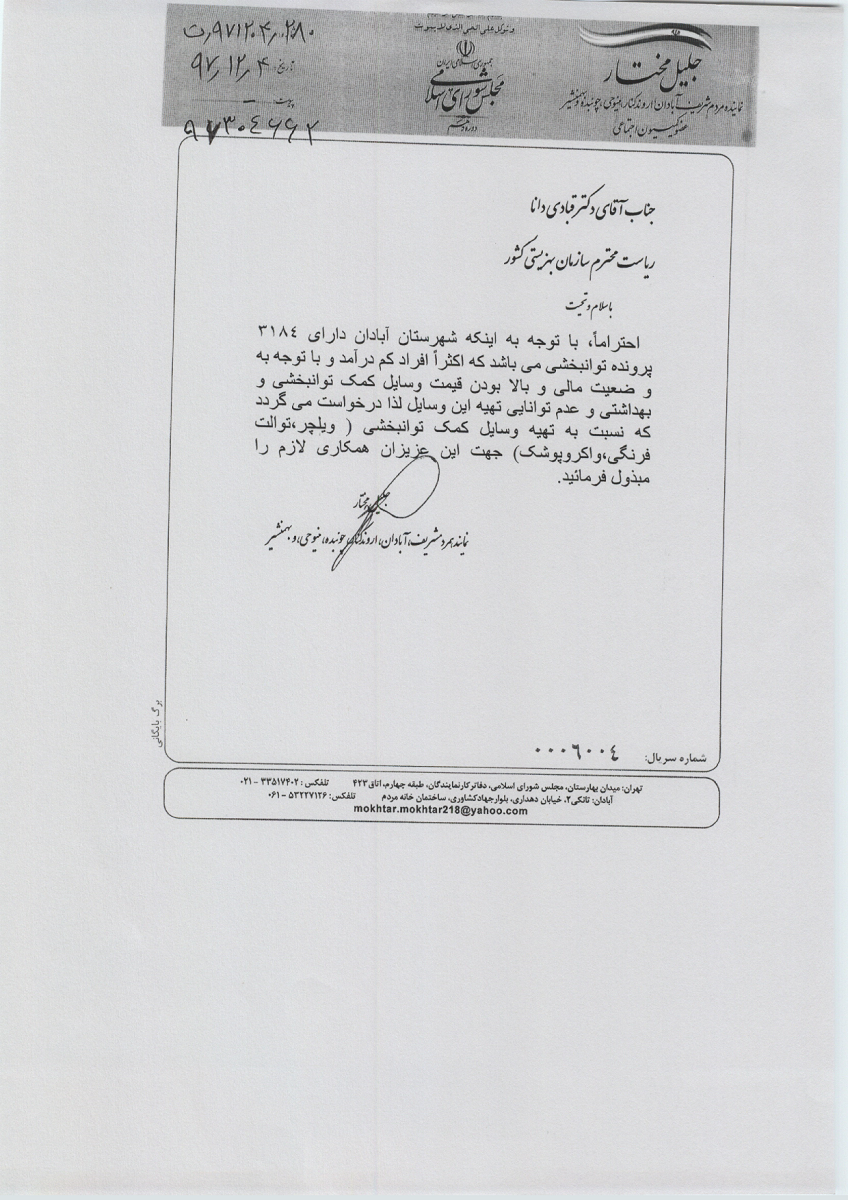 و توکل علی الحی الذی لا یموت
جمهوری اسلامی ایران
مجلس شورای اسلامی
دوره دهم
جلیل مختار
نماینده مردم شریف آبادان، اروندکنار، منیوحی، چوئبده و بهمنشیر
عضو کمیسیون اجتماعی
تاریخ: ۹۷/۱۲/۰۴
پیوست: –
۹۷۳۰٤۶۶۲
جناب آقای دکتر قبادی دانا
ریاست محترم سازمان بهزیستی کشور
با سلام و تحیت
احتراماً، با توجه به اینکه شهرستان آبادان دارای ۳۱۸٤
پرونده توانبخشی می باشد که اکثراً افراد کم درآمد و با توجه به
و ضعیت مالی و بالا بودن قیمت وسایل کمک توانبخشی و
بهداشتی و عدم توانایی تهیه این وسایل لذا درخواست می گردد
که نسبت به تهیه وسایل کمک توانبخشی ( ویلچر،توالت
فرنگی،واکروپوشک) جهت این عزیزان همکاری لازم را
مبذول فرمائید.
جلیل مختار
نماینده مردم شریف آبادان، اروندکنار، چوئبده، منیوحی، و بهمنشیر
برگ بایگانی
شماره سریال: ۰۰۰٦۰۰٤
تهران: میدان بهارستان، مجلس شورای اسلامی، دفاتر کار نمایندگان، طبقه چهارم، اتاق ۴۲۳ تلفکس : ۳۳۵۱۷۴۰۲ - ۰۲۱
آبادان: تانکی ۲، خیابان دهداری، بلوار جهاد کشاورزی، ساختمان خانه مردم تلفکس: ۵۳۲۲۷۱۲۶ - ۰۶۱
mokhtar.mokhtar218@yahoo.com